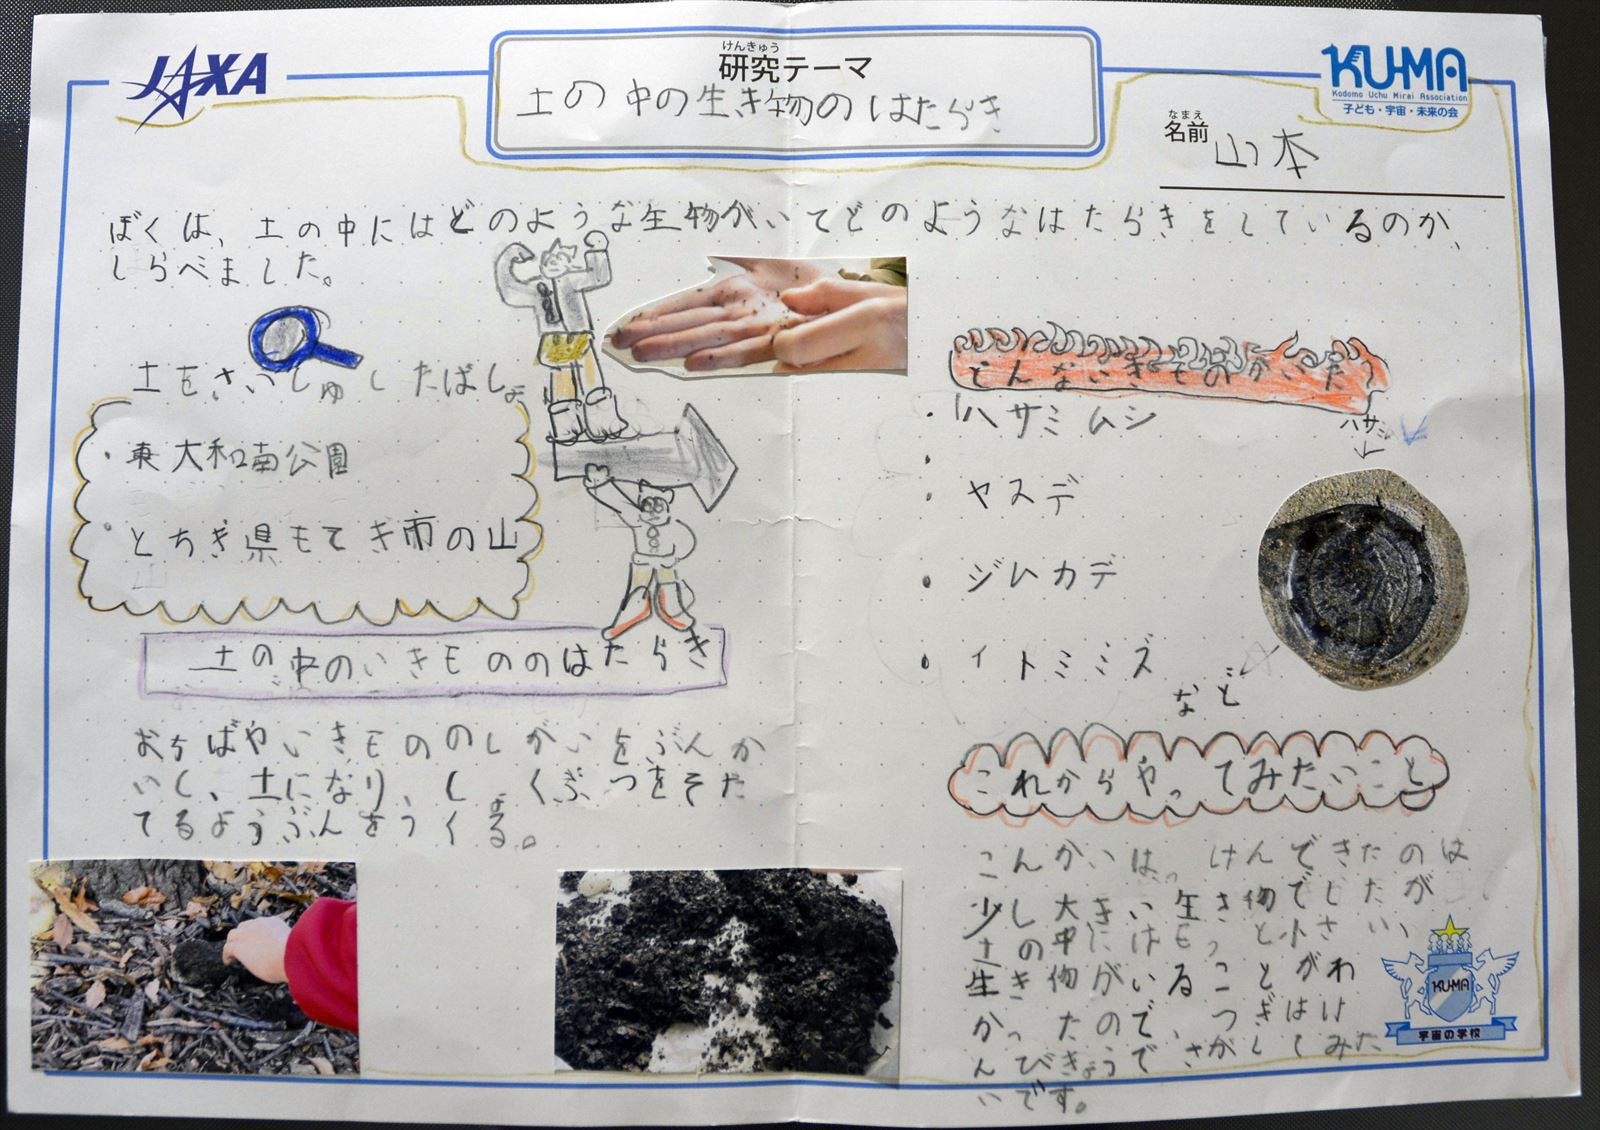 JAXA
けんきゅう
研究テーマ
土の中の生き物のはたらき
KU-MA
Kodomo Uchu Mirai Association
子ども・宇宙・未来の会
なまえ
名前 山本
ぼくは、土の中にはどのような生物がいてどのようなはたらきをしているのか、
しらべました。
土をさいしゅしたばしょ
・東大和南公園
・とちぎ県もてぎ市の山
土の中のいきもののはたらき
おちばやいきもののしがいをぶんか
いし、土になり、しょくぶつをそだ
てるようぶんをつくる。
どんないきものがいた
・ハサミムシ
・ヤスデ
・ジムカデ
・イトミミズ
など
ハサミ
これからやってみたいこと
こんかいは、けんできたのは
少し大きい生き物でしたが
土の中にはもっと小さい、
生き物がいることがわ
かったので、つぎはけ
んびきょうでさがしてみた
いです。
KU-MA
宇宙の学校